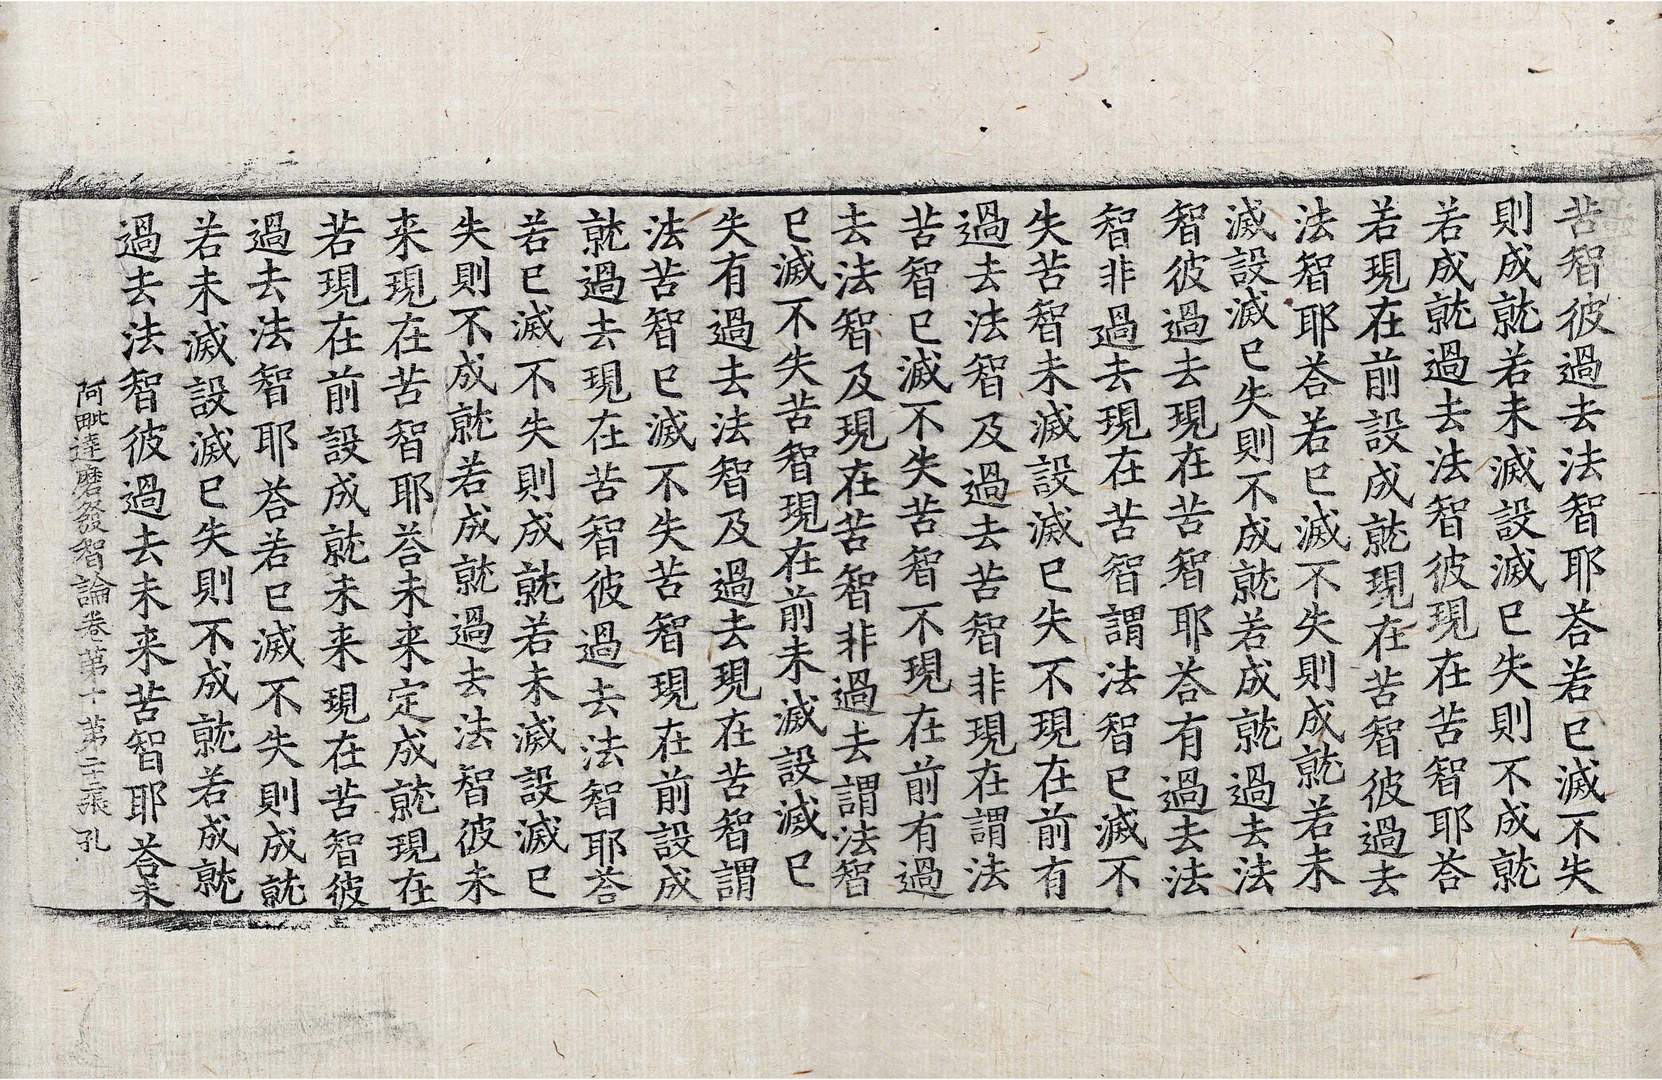 苦智彼過去法智耶荅若已滅不失
則成就若未滅設滅已失則不成就
若成就過去法智彼現在苦智耶荅
若現在前設成就現在苦智彼過去
法智耶荅若已滅不失則成就若未
滅設滅已失則不成就若成就過去法
智彼過去現在苦智耶荅有過去法
智非過去現在苦智謂法智已滅不
失苦智未滅設滅已失不現在前有
過去法智及過去苦智非現在謂法
苦智已滅不失苦智不現在前有過
去法智及現在苦智非過去謂法智
已滅不失苦智現在前未滅設滅已
失有過去法智及過去現在苦智謂
法苦智已滅不失苦智現在前設成
就過去現在苦智彼過去法智耶荅
若已滅不失則成就若未滅設滅已
失則不成就若成就過去法智彼未
来現在苦智耶荅未来定成就現在
若現在前設成就未来現在苦智彼
過去法智耶荅若已滅不失則成就
若未滅設滅已失則不成就若成就
過去法智彼過去未来苦智耶荅未
阿毗達磨發智論卷第十 第二十二張 孔